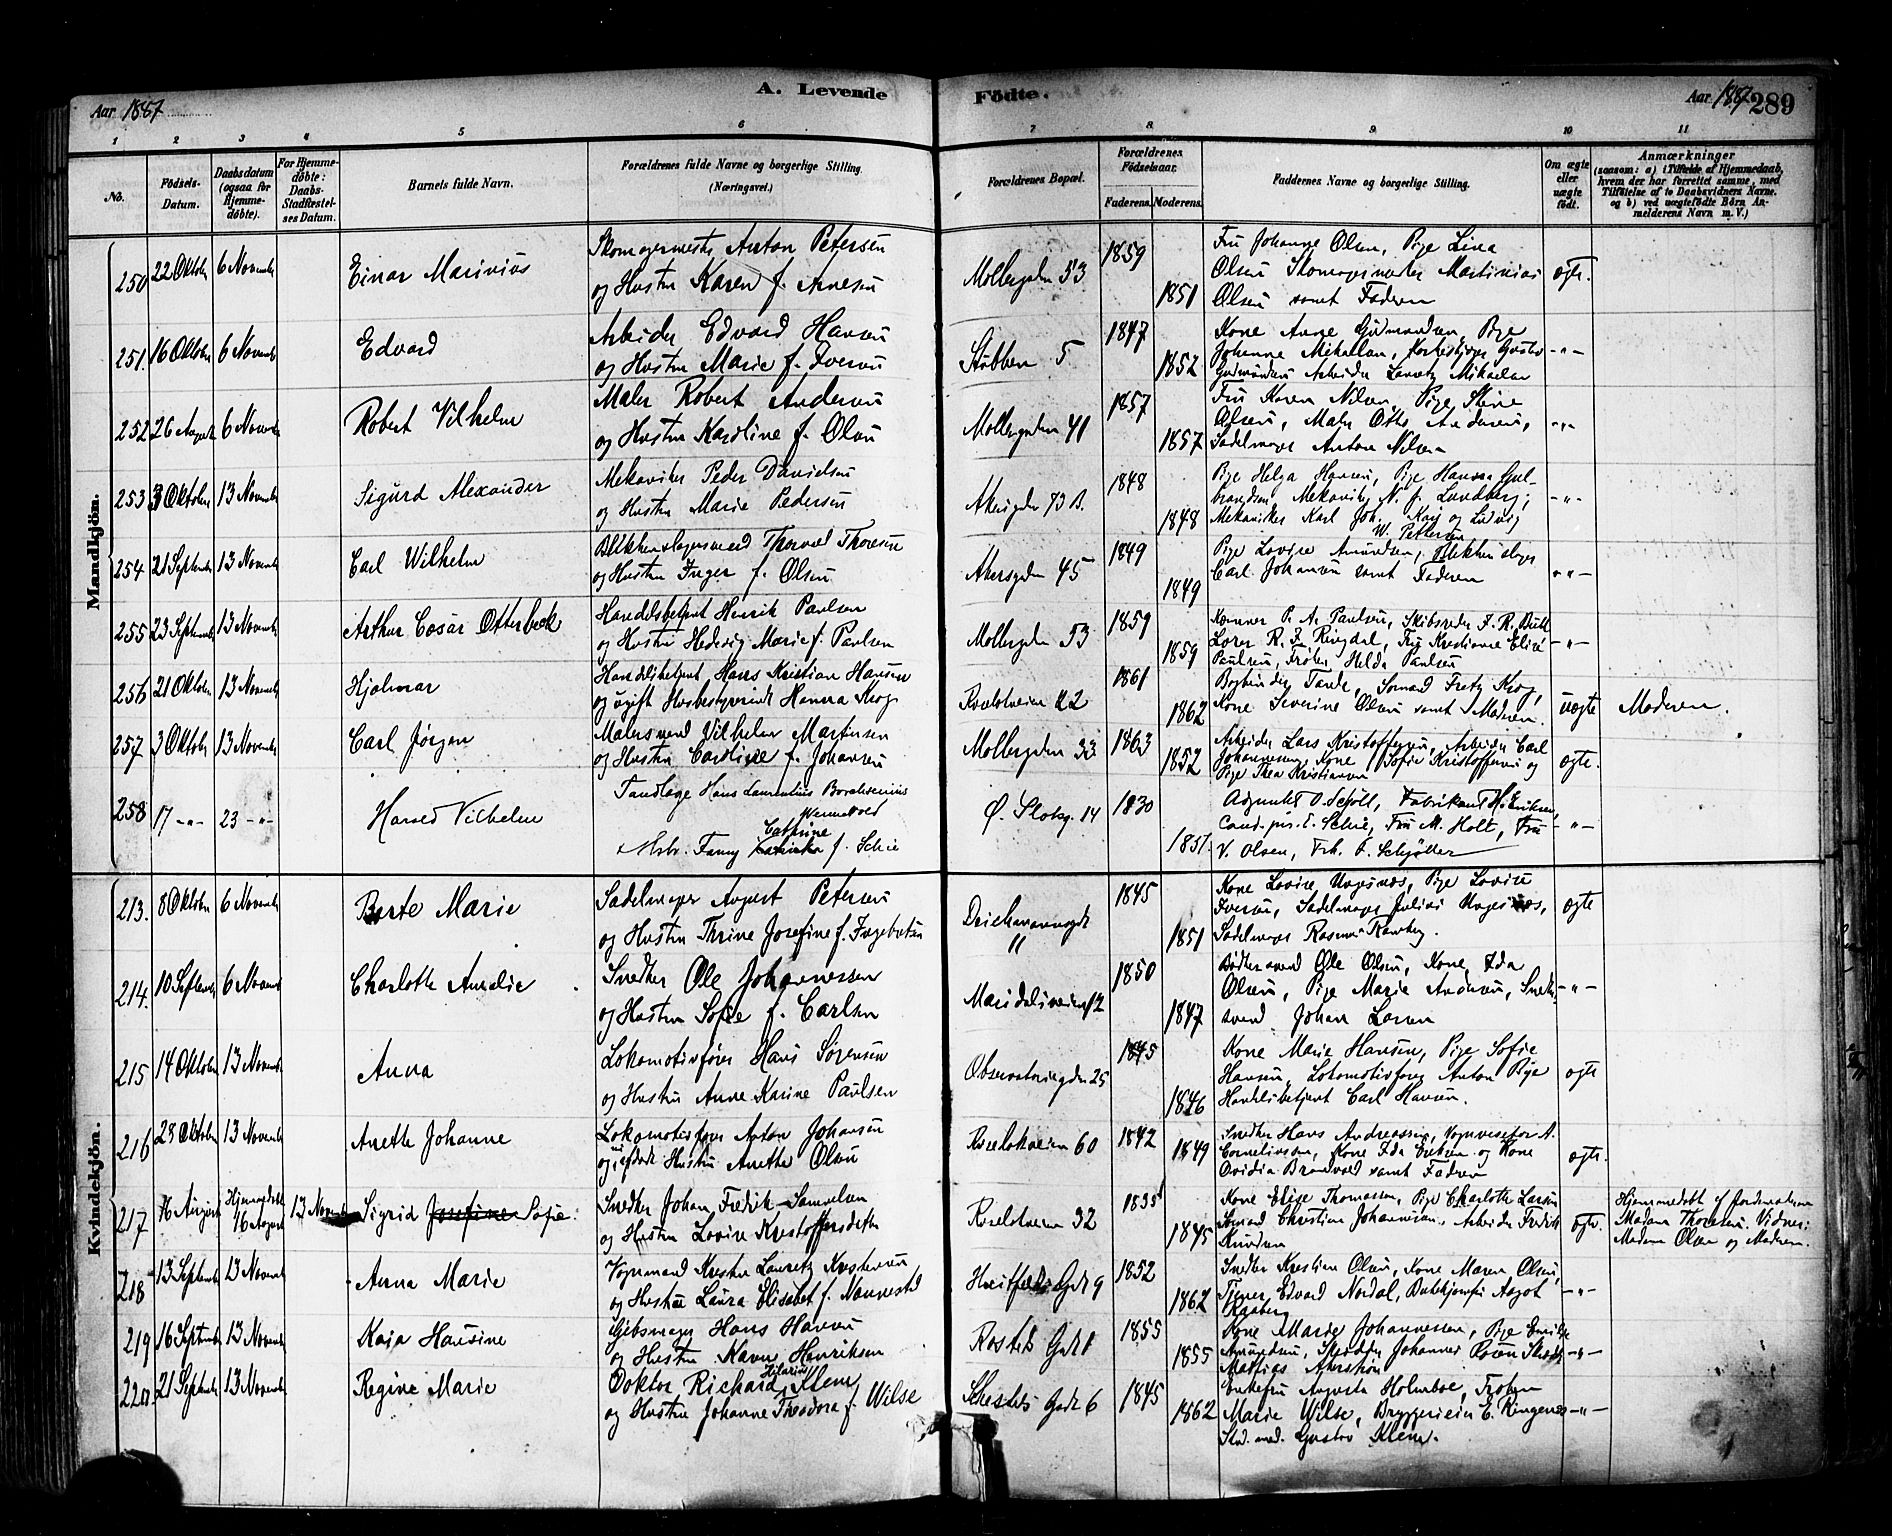 Aar 1887
A. Levende
Födte.
Aar 1887 289
1 2 3 4 5 6 7 8 9 10 11
No.
Födsels-Datum.
Daabsdatum (ogsaa for Hjemme-döbte).
For Hjemme-döbte: Daabs-Stadfæstel-ses Datum.
Barnets fulde Navn.
Forældrenes fulde Navne og borgerlige Stilling. (Næringsvei.)
Forældrenes Bopæl.
Forældrenes Födselsaar.
Faderens. Moderens.
Faddernes Navne og borgerlige Stilling.
Om ægte eller uægte födt.
Anmærkninger
(saasom: a) i Tilfælde af Hjemmedaab, hvem der har forrettet samme, med Tilföielse af to Daabsvidners Navne. og b) ved uægtefödte Börn An-melderens Navn m. V.)
Mandkjön.
250 22 Oktober 6 Novemb Einar Marinius
Skomagermester Anton Petersen
og Hustru Karen f. Arnesen
Møllergaden 53 1859 1851
Fru Johanne Olsen, Pige Lina
Olsen Skomagermester Martinius
Olsen samt Faderen
ægte.
251. 16 Oktober 6 Novemb Edvard
Arbeider Edvard Hansen
og Hustru Marie f. Iversen
Stubben 5 1847 1852
Kone Anne Gudmundsen, Pige
Johanne Mikaelsen,
Gudmundsen Arbeider Mikaelsen
-"-
252 26 August 6 Novemb Robert Vilhelm
Maler Robert Andersen
og Hustru Karoline f. Olsen
Møllergaden 41 1857 1857
Fru Karen Nilsen, Pige Stine
Olsen, Maler Otto Andersen,
Sadelmager Anton Nilsen
-"-
253 3 Oktober 13 Novemb Sigurd Alexander
Mekaniker Peder Davidsen
og Hustru Marie Pedersen
Akersgaden 73 B. 1848 1848
Pige Helga Hansen, Pige Hanna Gul-
brandsen, Mekaniker N. J. Lundberg,
Mekaniker Karl Joh. Kaij og Ludvig
W. Pettersen
-"-
254 21 September 13 Novemb Carl Wilhelm
Blikkenslagersvend Thorvald Thoresen
og Hustru Inger f. Olsen
Akersgaden 45 1849 1849
Pige Lovise Amundsen, Blikkenslager
Carl Johansen samt Faderen
-"-
255 23 Septemb 13 Novemb Arthur Cæsar Otterbeck
Handelsbetjent Henrik Paulsen
og Hustru Hedevig Marie f. Paulsen
Møllergaden 53 1859 1859
P. A. Paulsen, Skibsreder F. R. Bull
R. F. Ringdal, Fru Kristianne Elise
Paulsen, Frøken Hilda Paulsen
-"-
256 21 Oktober 13 Novemb Hjalmar
Handelsbetjent Hans Kristian Hansen
og ugift Husbestyrerinde Hanna Krog
22 1861 1862
Bogbinder Sømand Fretz Krog,
Kone Severine Olsen samt Moderen.
uægte Moderen.
257 3 Oktober 13 Novemb Carl Jørgen
Malersvend Vilhelm Martinsen
og Hustru Caroline f. Johansen
Møllergaden 33 1863 1852
Arbeider Lars Kristoffersen, Arbeider Carl
Johannesen, Kone Sofie Kristoffersen og
Pige Thea Kristiansen
ægte.
258 17 -"- 23 -"- Harald Vilhelm
Tandlæge Hans Laurentius Borchsenius
Wennevold
Cathrine
& Hsbr. Fanny f. Schie
Ø. Slotsg. 14 1830 1851.
Adjunkt O. Schøll, Fabrikant H. Eriksen,
Cand. pír. E. Schie, Fru M. Holt, Fru
V. Olsen, Frk. F. Schjøller
-"-
Kvindekjön.
213. 8 Oktober 6 Novemb Berte Marie
Sadelmager August Petersen
og Hustru Thrine Josefine f. Ingebretsen
Deichmannsgde
11 1845 1851
Kone Lovise Ungesnes, Pige Lovise
Iversen, Sadelmager Julius Ungesnes,
Sadelmager Rasmus Ramberg.
ægte
214. 10 September 6 Novemb Charlotte Amalie
Snedker Ole Johannessen
og Hustru Sofie f. Carlsen
Maridalsveien 12 1850 1847
Bødkersvend Ole Olsen, Kone Ida
Olsen, Pige Marie Andersen, Snedker-
svend Johan Larsen
-"-
215 14 Oktober 13 Novemb Anna
Lokomotivfører Hans Sørensen
og Hustru Anne Karine Paulsen
Observatoriegaden 25 1845 1846
Kone Marie Hansen, Pige Sofie
Hansen, Lokomotivfører Anton Bye
Handelsbetjent Carl Hansen.
ægte
216 28 Oktober 13 Novemb Anette Johanne
Lokomotivfører Anton Johansen
og Hustru Anette Olsen
60 1842 1849
Snedker Hans Andreassen, Vognvisitør A.
Corneliussen, Kone Ida Eriksen og Kone
Ovidia Brandvold samt Faderen
ægte.
217 16 August Hjemmedøbt
16 August 13 Novemb Sigrid Josefine Sofie.
Snedker Johan Fredrik Samuelsen
og Hustru Lovise Kristoffersdatter
32 1835 1845
Kone Elise Thomassen, Pige Charlotte Larsen
Sømand Christian Johannesen, Arbeider Fredrik
Knudsen
ægte.
Hjemmedøbt af Jordemoderen
Madam Thorsen. Vidner:
Madam Olsen og Moderen.
218 13 Septemb 13 Novemb Anna Marie
Vognmand Kresten Lauretz Krestensen
og Hustru Laura Elisabet f. Nonnestad
Huitfeldts Gade 9 1852 1862
Snedker Kristian Olsen, Kone Maren Olsen,
Tjener Edvard Nordal, Butikjomfru Aagot
Raaberg
-"-
219 16 Septemb 13 Novemb Kaja Hansine
Gibsmager Hans Hansen
og Hustru Karen Henriksen
Rosteds Gade 1 1855 1855
Kone Marie Johannessen, Pige Emilie
Amundsen, Johannes
Mathias
-"-
220. 21 Septemb 13 Novemb Regine Marie
Doktor Richard Hilarius Klem
og Hustru Johanne Theodora f. Wilse
Gade 6 1845 1862
Enkefru Augusta Holmboe, Frøken
Marie Wilse, Bryggerieier E. Ringnes
Stud. med. Gustav Klem.
-"-